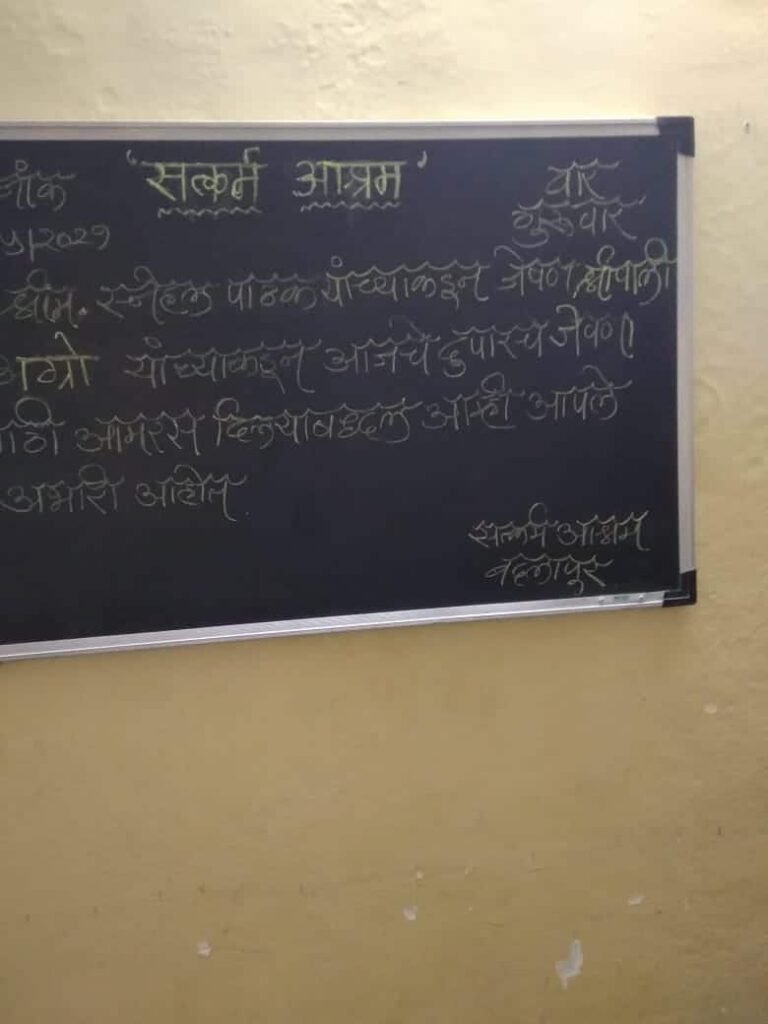 नांक 'सत्कर्म आश्रम' वार
५/२०२१ गुरुवार
श्रीम. स्नेहल पाठक यांच्याकडून जेवण, श्रीपाली
अॅग्रो यांच्याकडून आजचे दुपारचे जेवणा
साठी आमरस दिल्याबद्दल आम्ही आपले
अभारी आहोत.
सत्कर्म आश्रम
बदलापुर